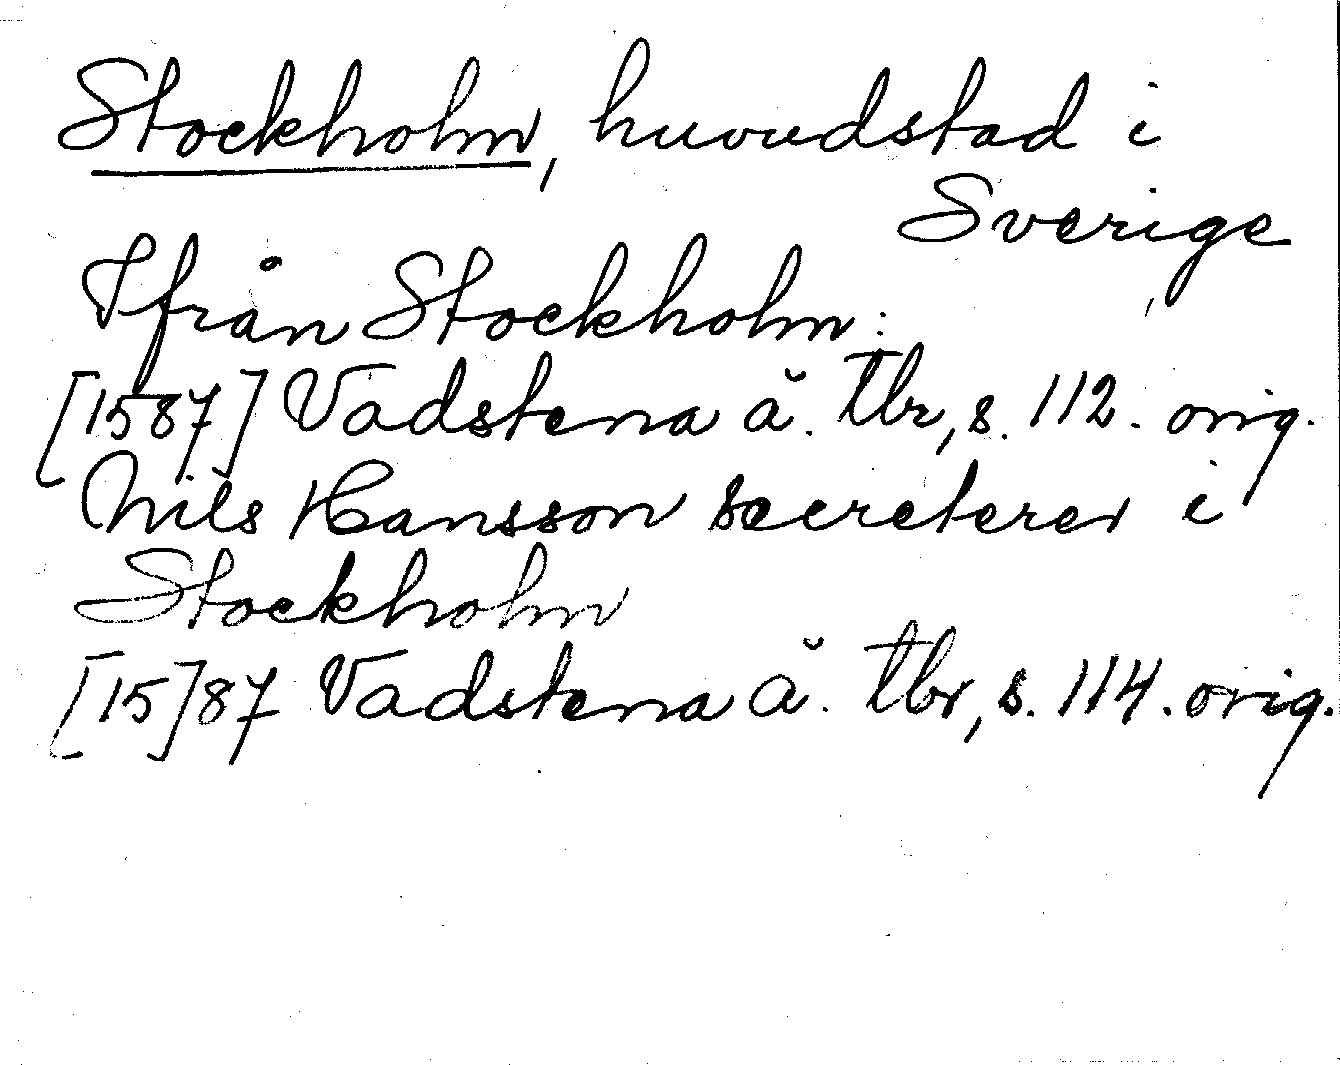 Stockholm, huvudstad i
Sverige
Ifrån Stockholm:
[1587] Vadstena ä. tbr, s. 112. orig.
Nils Hansson secreterer i
Stockholm
[15]87 Vadstena ä. tbr, s. 114. orig.